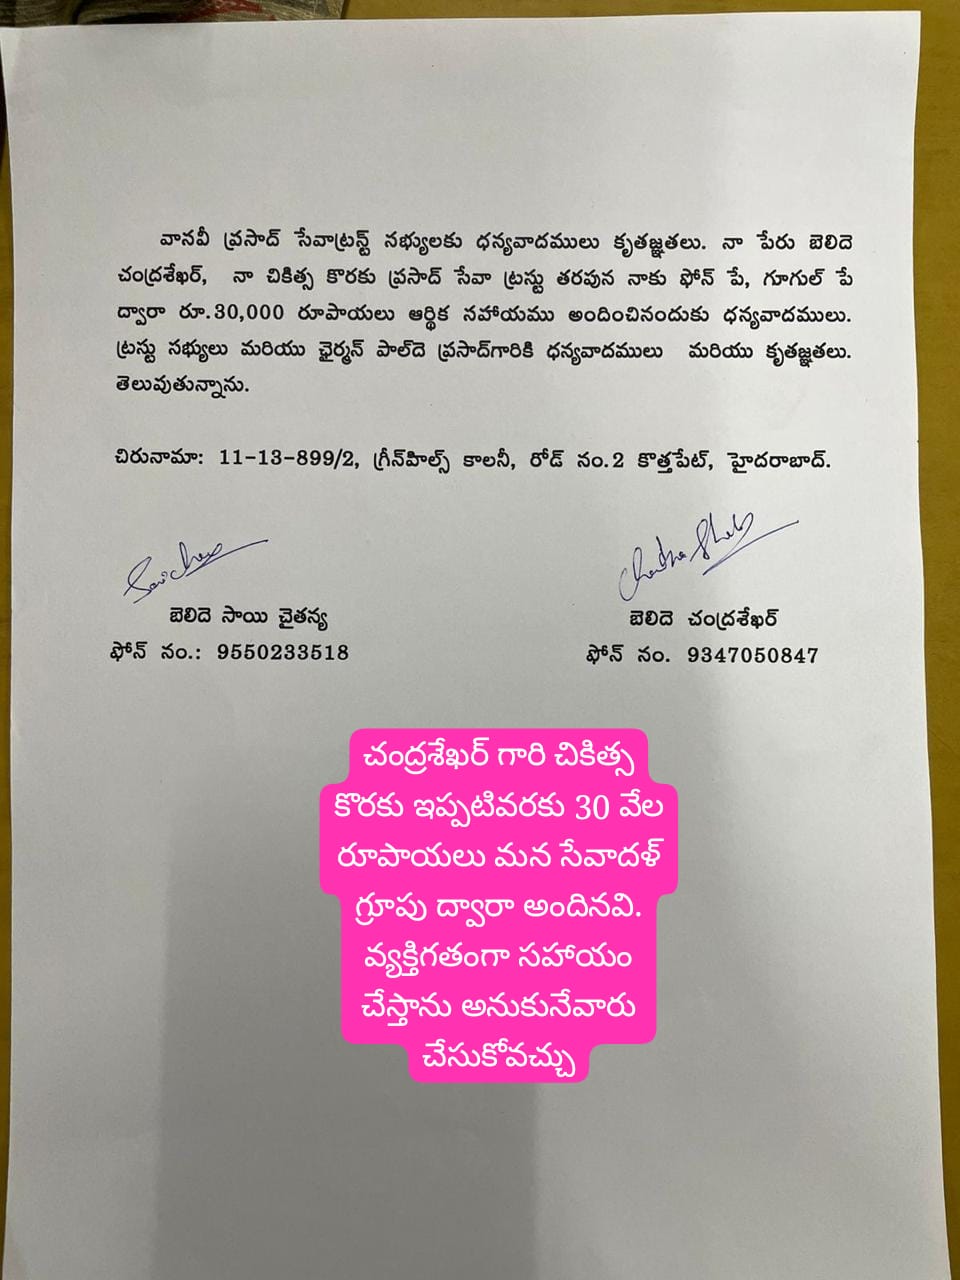 వానవీ ప్రసాద్ సేవాట్రస్ట్ నభ్యులకు ధన్యవాదములు కృతజ్ఞతలు. నా పేరు బెలిదె
చంద్రశేఖర్, నా చికిత్స కొరకు ప్రసాద్ సేవా ట్రస్టు తరపున నాకు ఫోన్ పే, గూగుల్ పే
ద్వారా రూ.30,000 రూపాయలు ఆర్థిక నహాయము అందించినందుకు ధన్యవాదములు.
ట్రస్టు సభ్యులు మరియు ఛైర్మన్ పాల్‌దె ప్రసాద్‌గారికి ధన్యవాదములు మరియు కృతజ్ఞతలు.
తెలువుతున్నాను.
చిరునామా: 11-13-899/2, గ్రీన్‌హిల్స్ కాలనీ, రోడ్ నం.2 కొత్తపేట్, హైదరాబాద్.
బెలిదె సాయి చైతన్య
ఫోన్ నం.: 9550233518
బెలిదె చంద్రశేఖర్
ఫోన్ నం. 9347050847
చంద్రశేఖర్ గారి చికిత్స
కొరకు ఇప్పటివరకు 30 వేల
రూపాయలు మన సేవాదళ్
గ్రూపు ద్వారా అందినవి.
వ్యక్తిగతంగా సహాయం
చేస్తాను అనుకునేవారు
చేసుకోవచ్చు